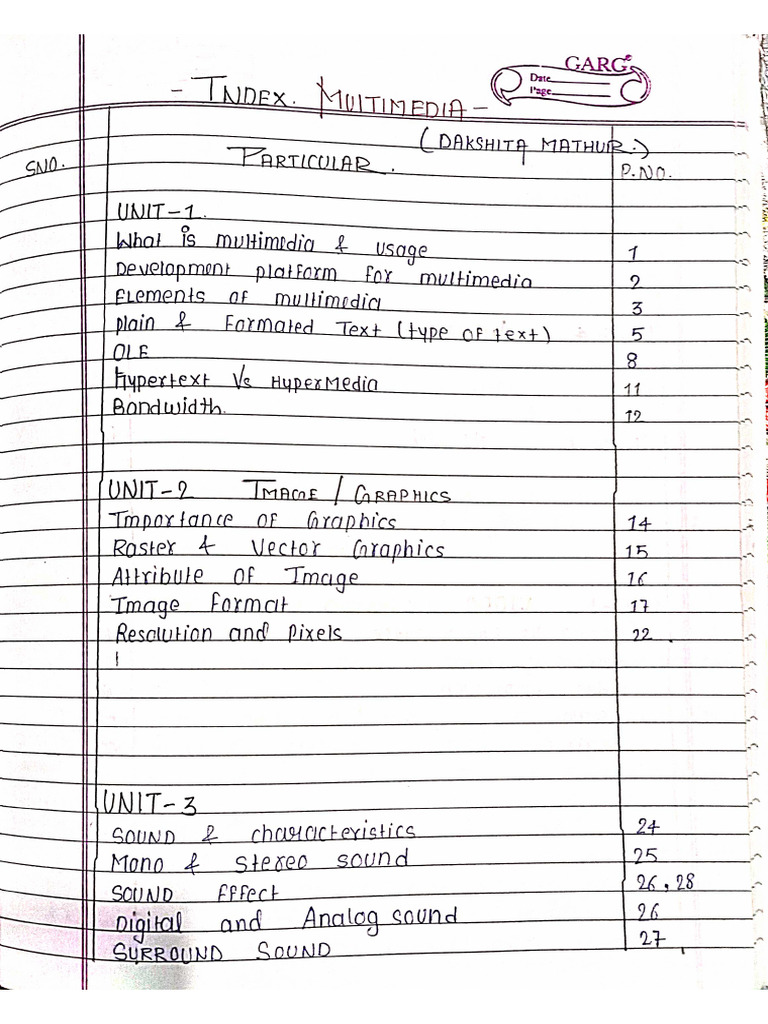 GARG®
Date
Page
- INDEX. MULTIMEDIA -
(DAKSHITA MATHUR.)
SNO. PARTICULAR. P.NO.
UNIT-1.
What is multimedia & usage 1
Development platform for multimedia 2
Elements of multimedia 3
Plain & Formated Text (type of text) 5
OLE 8
Hypertext Vs HyperMedia 11
Bandwidth. 12
UNIT-2 IMAGE / GRAPHICS
Importance of Graphics 14
Raster & Vector Graphics 15
Attribute of Image 16
Image format 17
Resolution and Pixels 22.
UNIT-3
SOUND & characteristics 24
Mono & stereo sound 25
SOUND Effect 26, 28
Digital and Analog sound 26
SURROUND SOUND 27